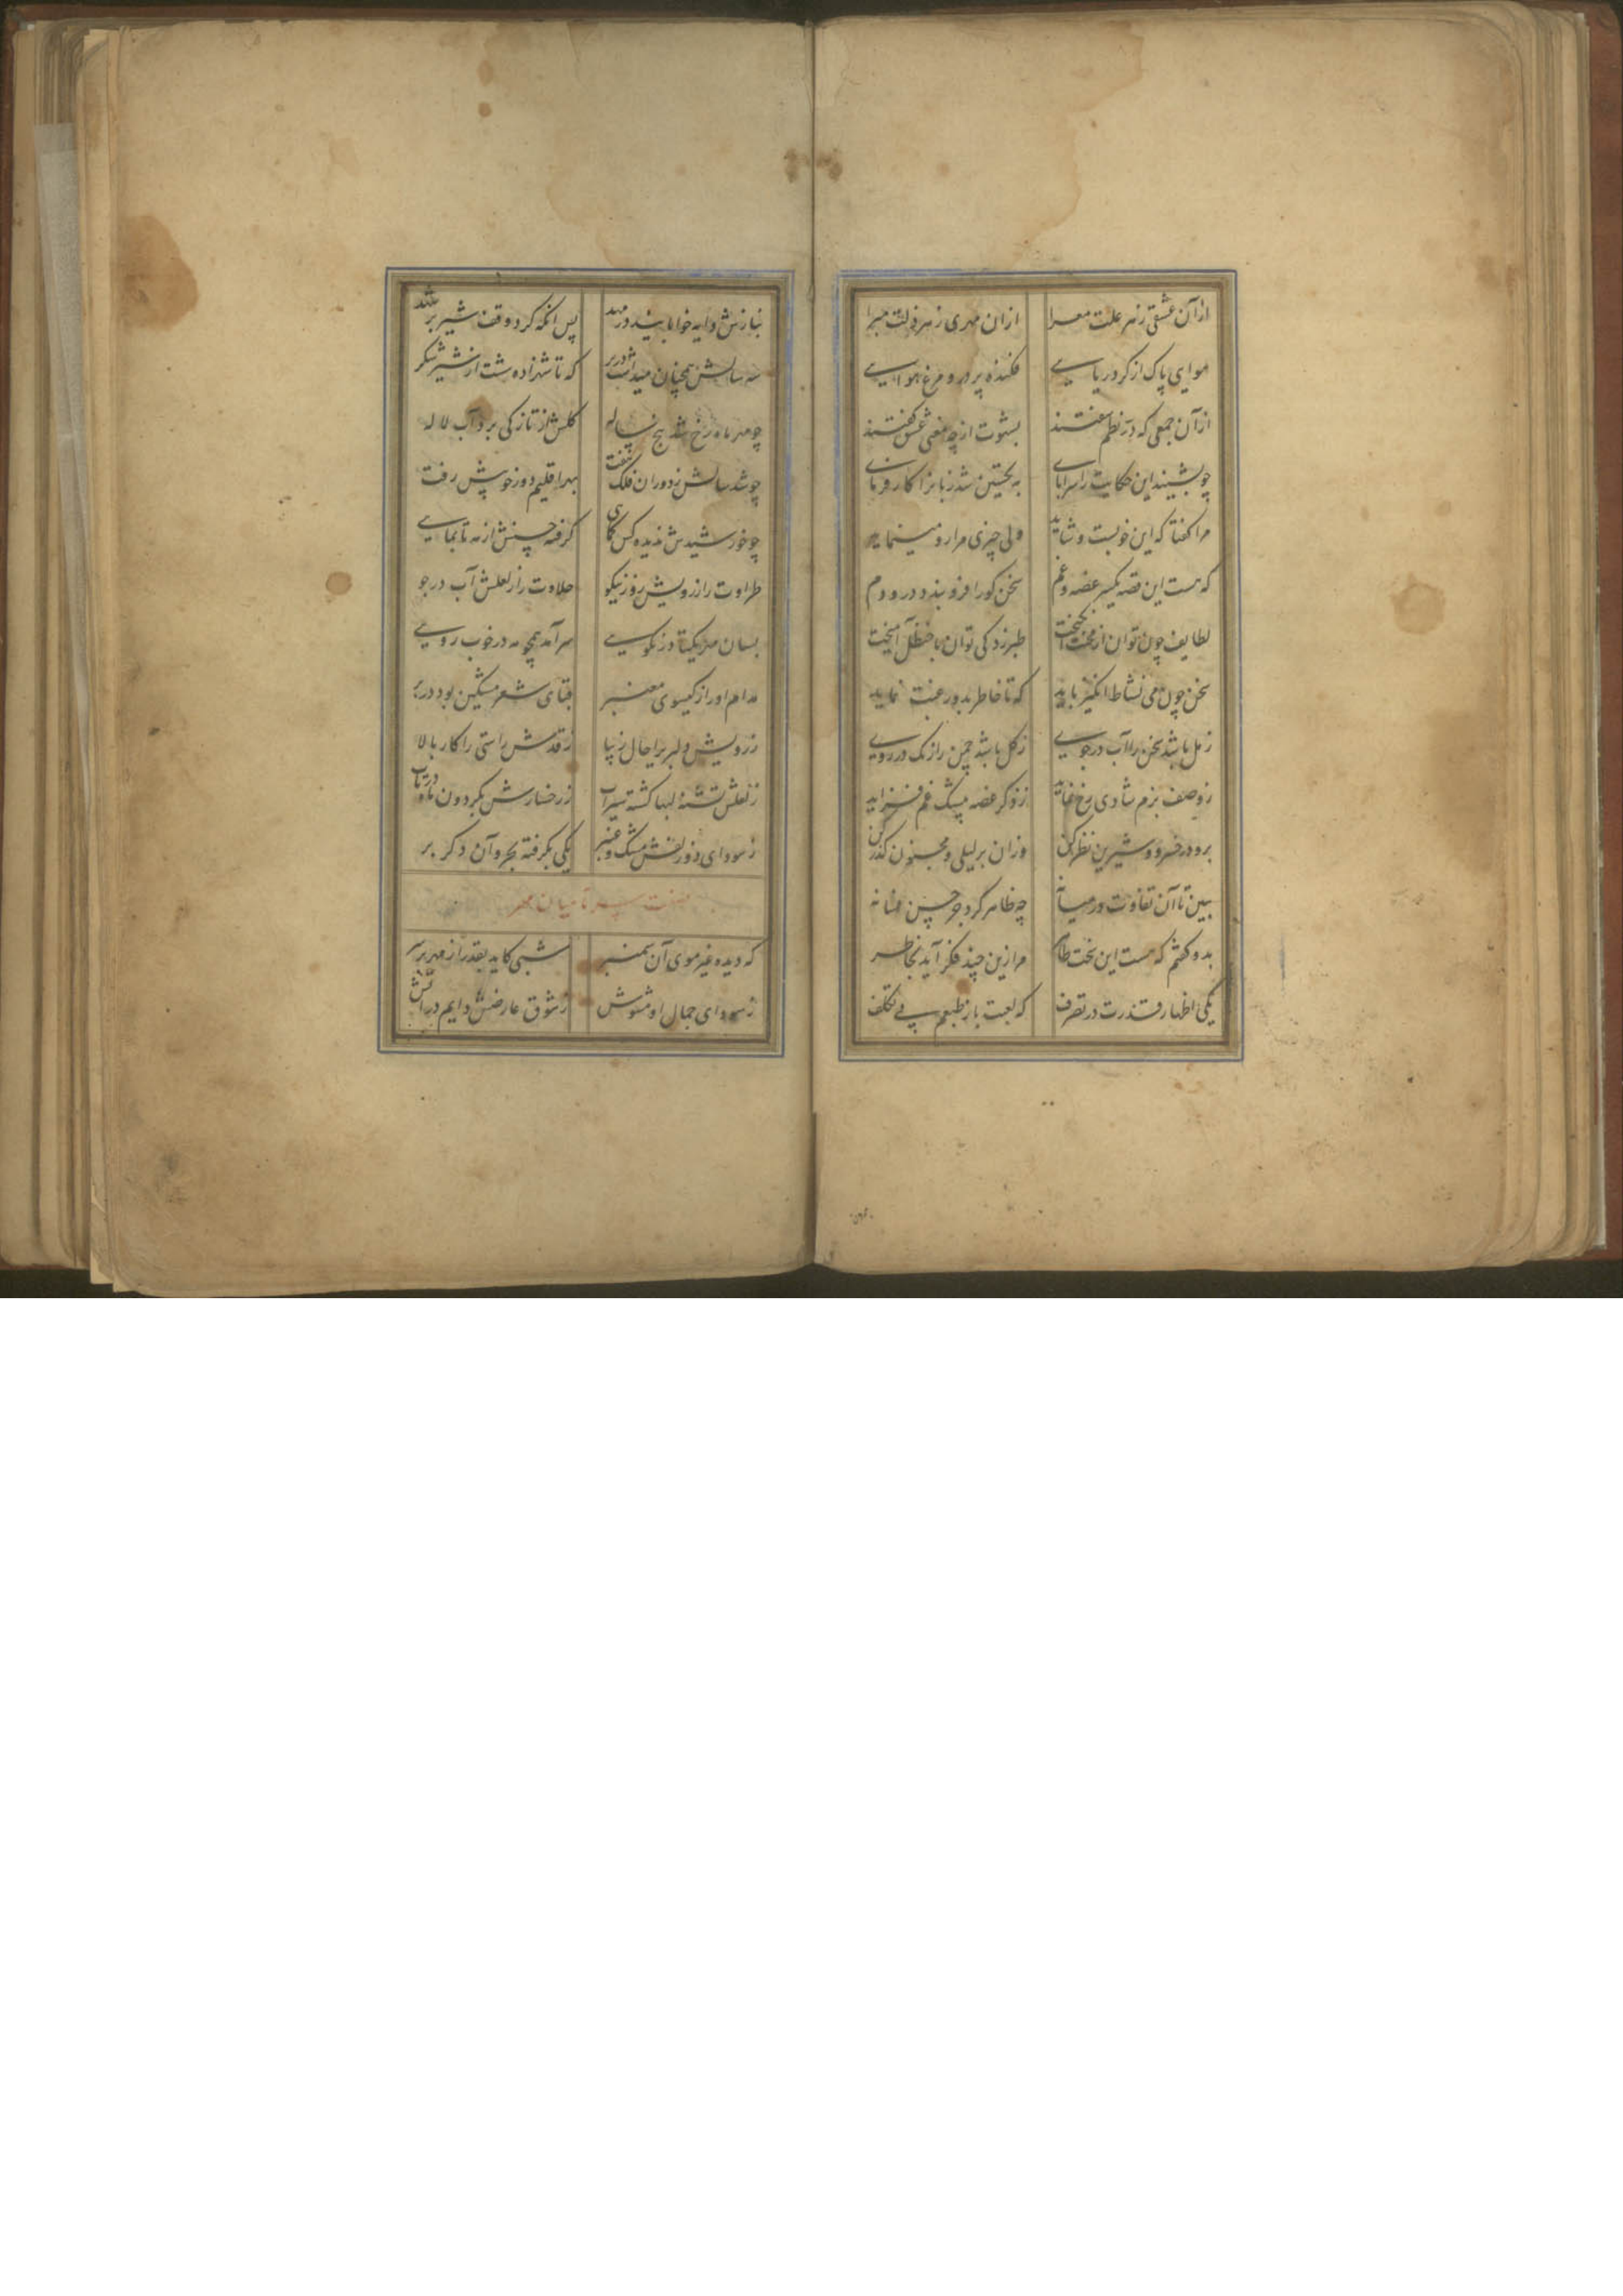 ازآن عشقی زهر علت معرا ازان مهری زهر ذلت مبرا
هوای پاک از کرد ریایی فکنده پر درو مرغ هوایی
ازآن جمعی که در نظم سفتند بشوت ازچه معنی عشق کفتند
چو بشنید این حکایت را سراپای به تحسین شد زبانرا کارفرمای
مرا کفتا که این خوبست و شاید ولی چیزی مرا رو مینماید
که هست این قصه یکسر غصه و غم سخن کورا فرو بندد درو دم
لطایف چون توان از محنت انکیخت طبرزد کی توان با حنظل آمیخت
سخن چون می نشاط انکیز باید که تا خاطر بدو رغبت نماید
ز مل باشد سخن را آب درجوی ز کل باشد چمن را رنک در روی
ز وصف بزم شادی رخ نماید ز ذکر غصه بیشک غم فزاید
برو در خسرو و شیرین نظر کن وزان بر لیلی و مجنون کذر کن
ببین تا آن تفاوت در میانه چه ظاهر کرد جز حسن فسانه
بدو کفتم که هست این سخت ظاهر مرا زین چند فکر آید بخاطر
یکی اظهار قدرت در تصرف که لعبت باز طبعم بی تکلف
بنازش دایه خوابانید در مهد پس انکه کرد وقف شیر بر شهد
سه سالش همچنان میداشت در بر که تا شهزاده شست از شیر شکر
چو مهر ماه رخ شد پنج ساله کلش از تازکی برد آب لاله
چو شد سالش ز دوران فلک هفت بهر اقلیم دور خوبیش رفت
چو خورشیدش ندیده کس کماهی کرفته حسنش از مه تا بماهی
طراوت را ز رویش روز نیکو حلاوت را ز لعلش آب در جو
بسان مه یکتا در نکویی سرآمد همچو مه در خوب رویی
مدام اورا ز کیسوی معنبر قبای شعر مشکین بود در بر
ز رویش دلبری را حال زیبا ز قدش راستی را کار بالا
ز لعلش تشنه لبها کشته سیراب ز رخسارش بکردون ماه در تاب
ز سودای دو زلفش مشک و عنبر یکی بکرفته بحر و آن دکر بر
صفت سر تا میان مهر
که دیده غیر موی آن سمنبر شبی کاید بقدر از مهر برسر
ز سودای جمال او مشوش ز شوق عارضش دایم در آتش